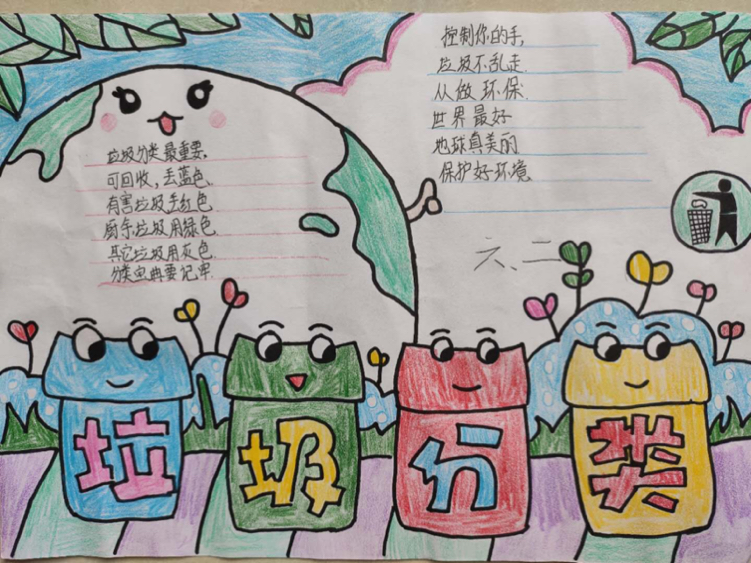 垃圾分类最重要,
可回收,丢蓝色.
有害垃圾丢红色
厨余垃圾用绿色
其它垃圾用灰色.
分类宝典要记牢.
控制你的手,
垃圾不乱走.
从做环保.
世界最好
地球真美丽
保护好环境
六、二
垃圾分类